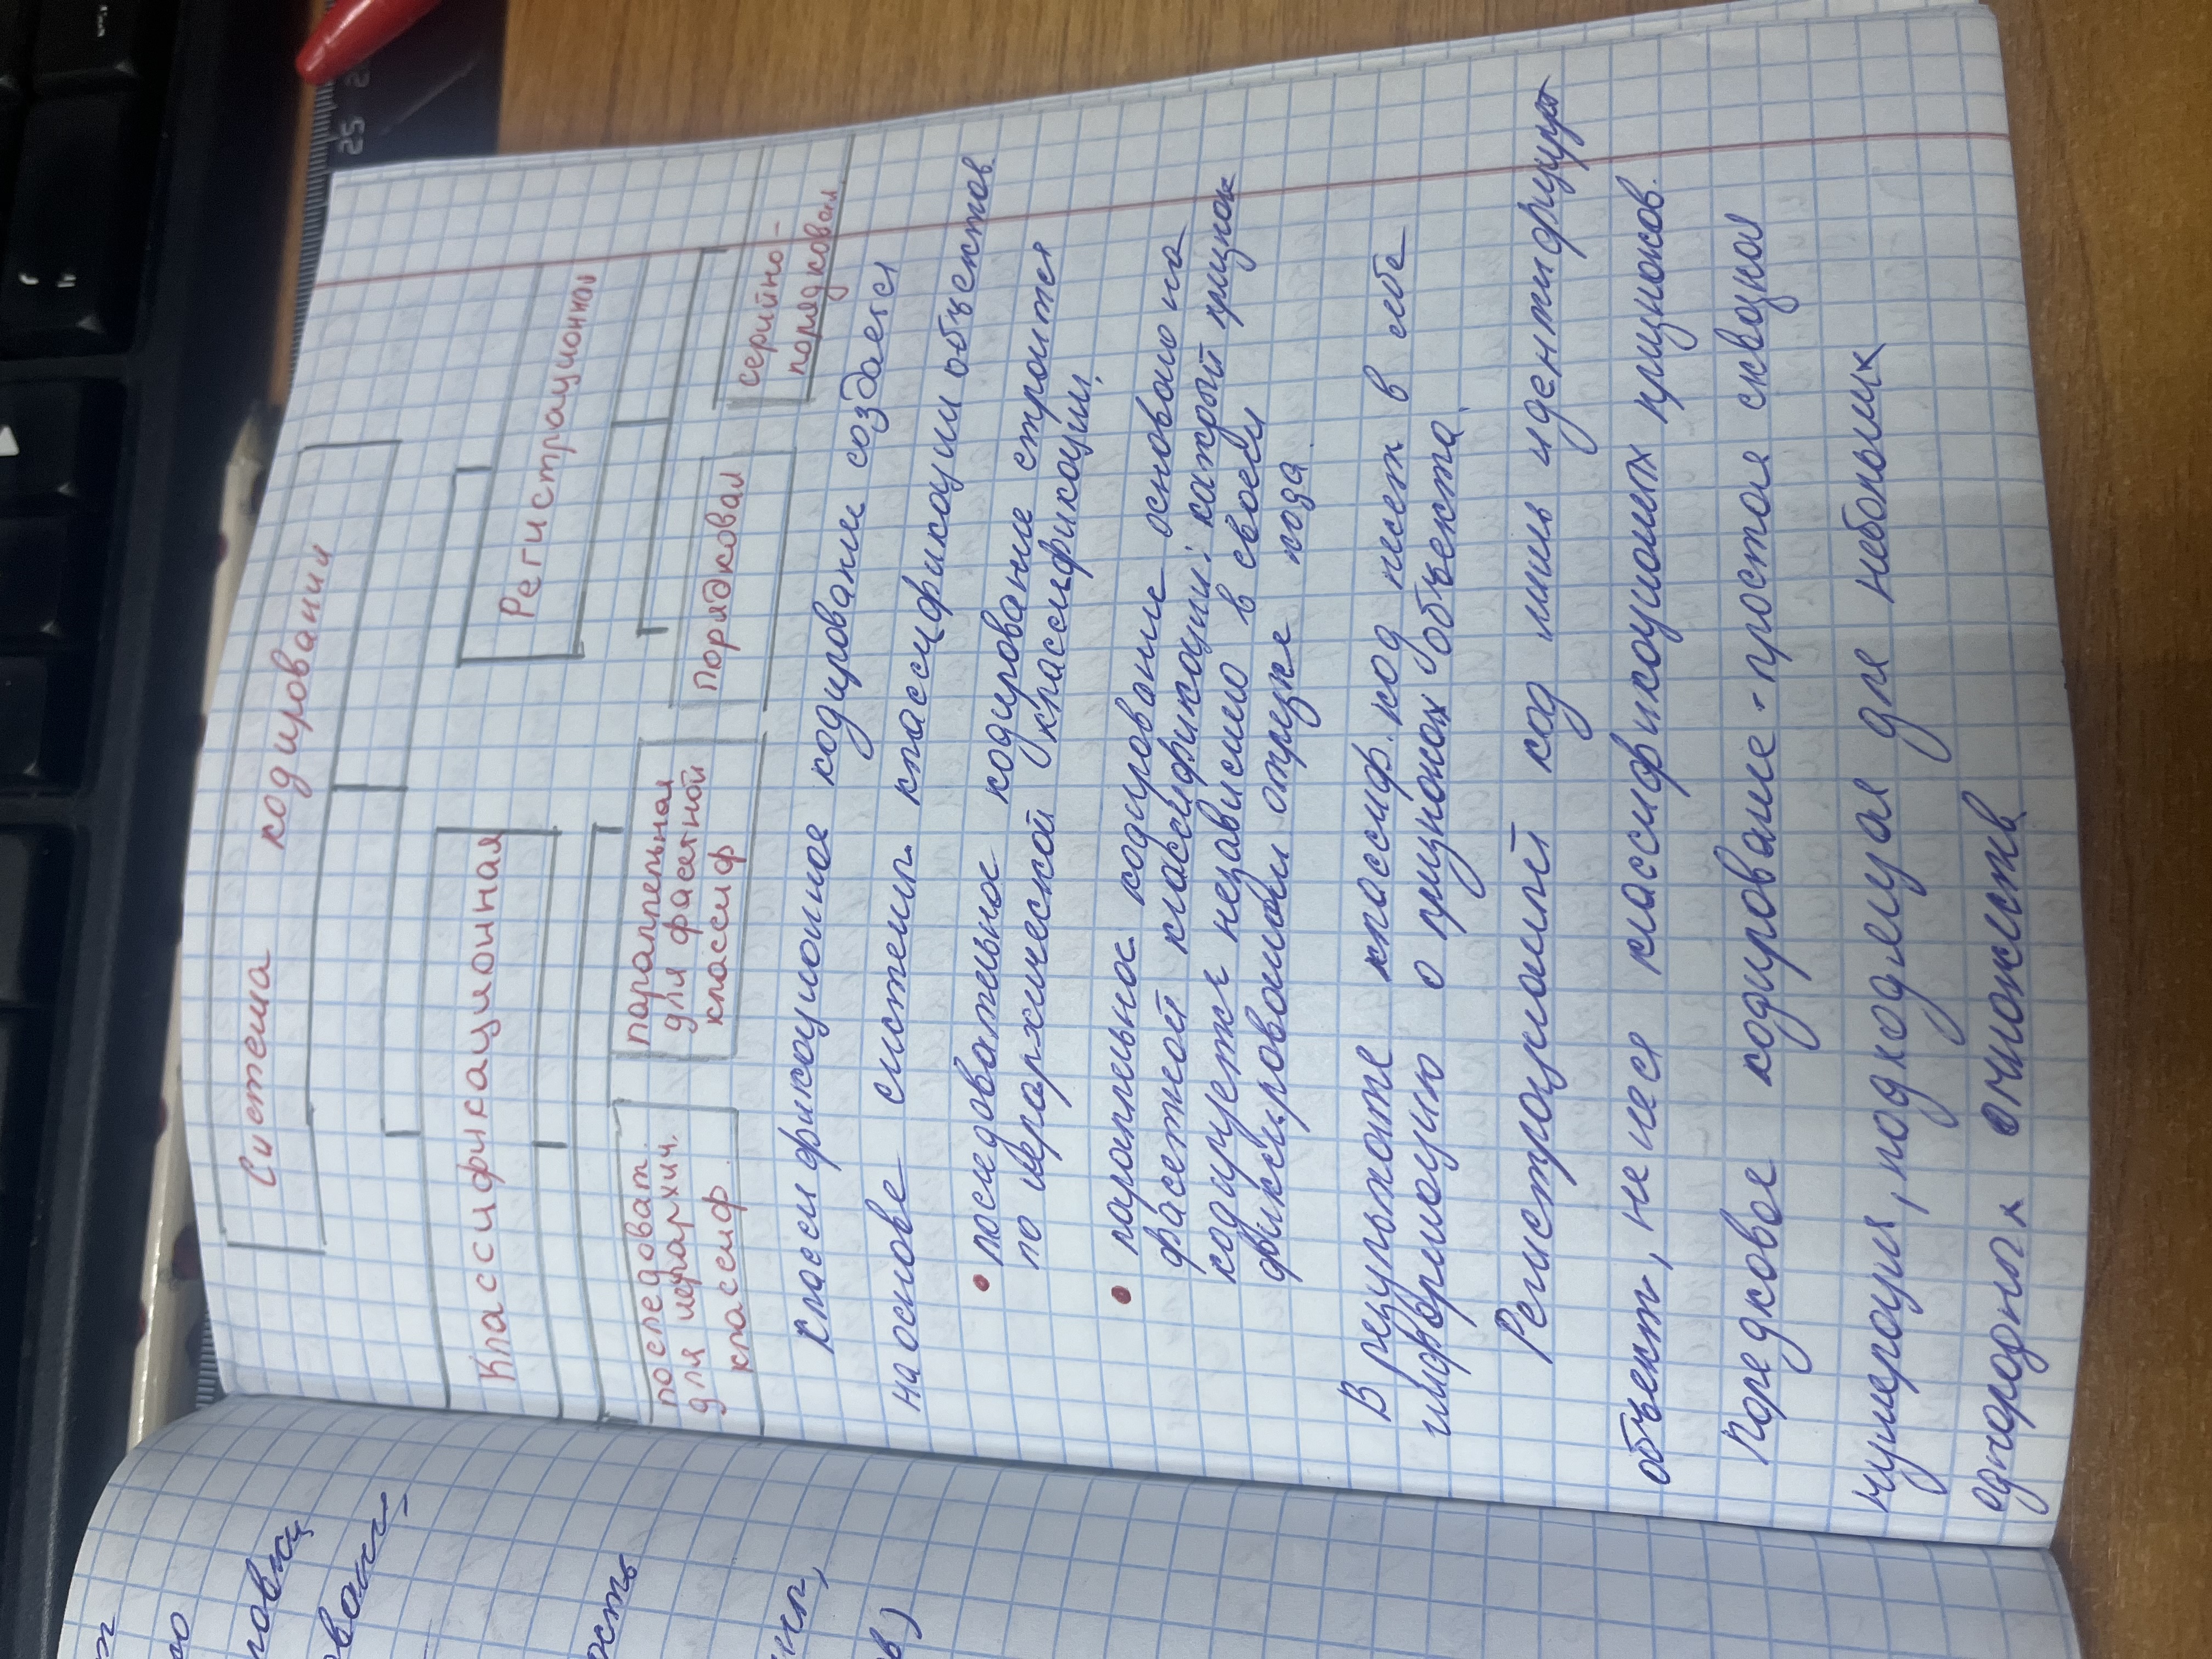 Система кодирования
Классификационная
Регистрационная
последоват.
для иерархич.
классиф.
параллельная
для фасетной
классиф
порядковая
серийно-
порядковая.
Классификационное кодирование создается
на основе системы классификации объектов.
• последовательное кодирование строится
по иерархической классификации.
• параллельное кодирование основано на
фасетной классификации: каждый признак
кодируется независимо в своем
фиксированном отрезке кода.
В результате классиф. код несет в себе
информацию о признаках объекта.
Регистрационный код лишь идентифицирует
объект, не неся классификационных признаков.
Порядковое кодирование - простая сквозная
нумерация, подходящая для небольших
однородных множеств
ость
ов)